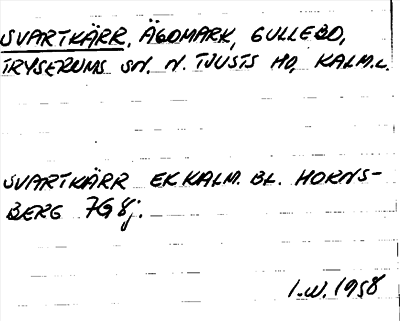 SVARTKÄRR, ÄGOMARK, GULLEBO,
TRYSERUMS SN, N. TJUSTS HD, KALM.L.
SVARTKÄRR EK KALM. BL. HORNS-
BERG 7G 8j.
I.W. 1958